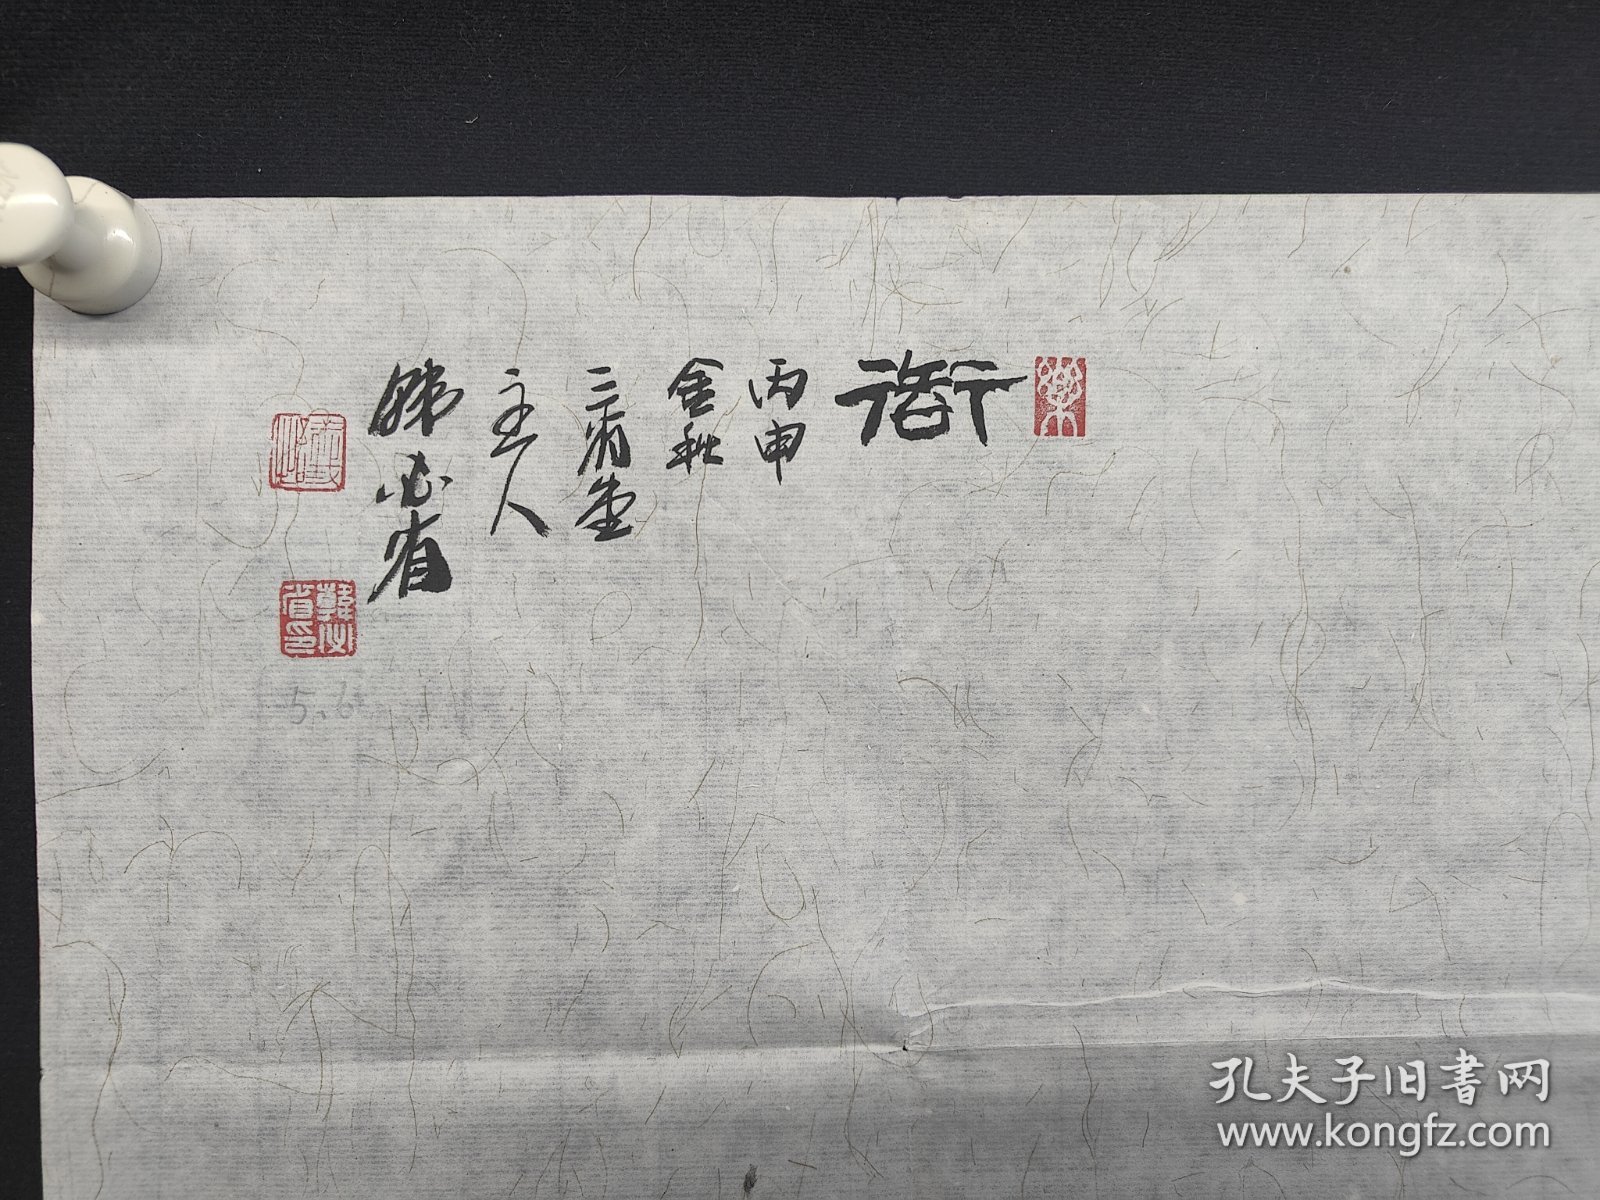 樂
丙申
金秋
三省堂
主人
韩必省
韓必省印
5.6
孔夫子旧書网
www.kongfz.com